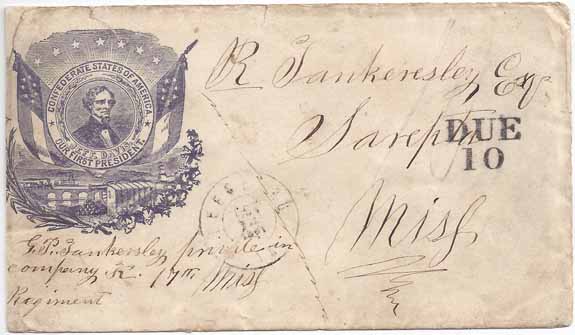 CONFEDERATE STATES OF AMERICA.
JEFF. DAVIS
OUR FIRST PRESIDENT.
R Tankersley, Esq
Sarepta
DUE
10
Miss
G. P. Tankersley private in
company K. 17th Miss
Regiment